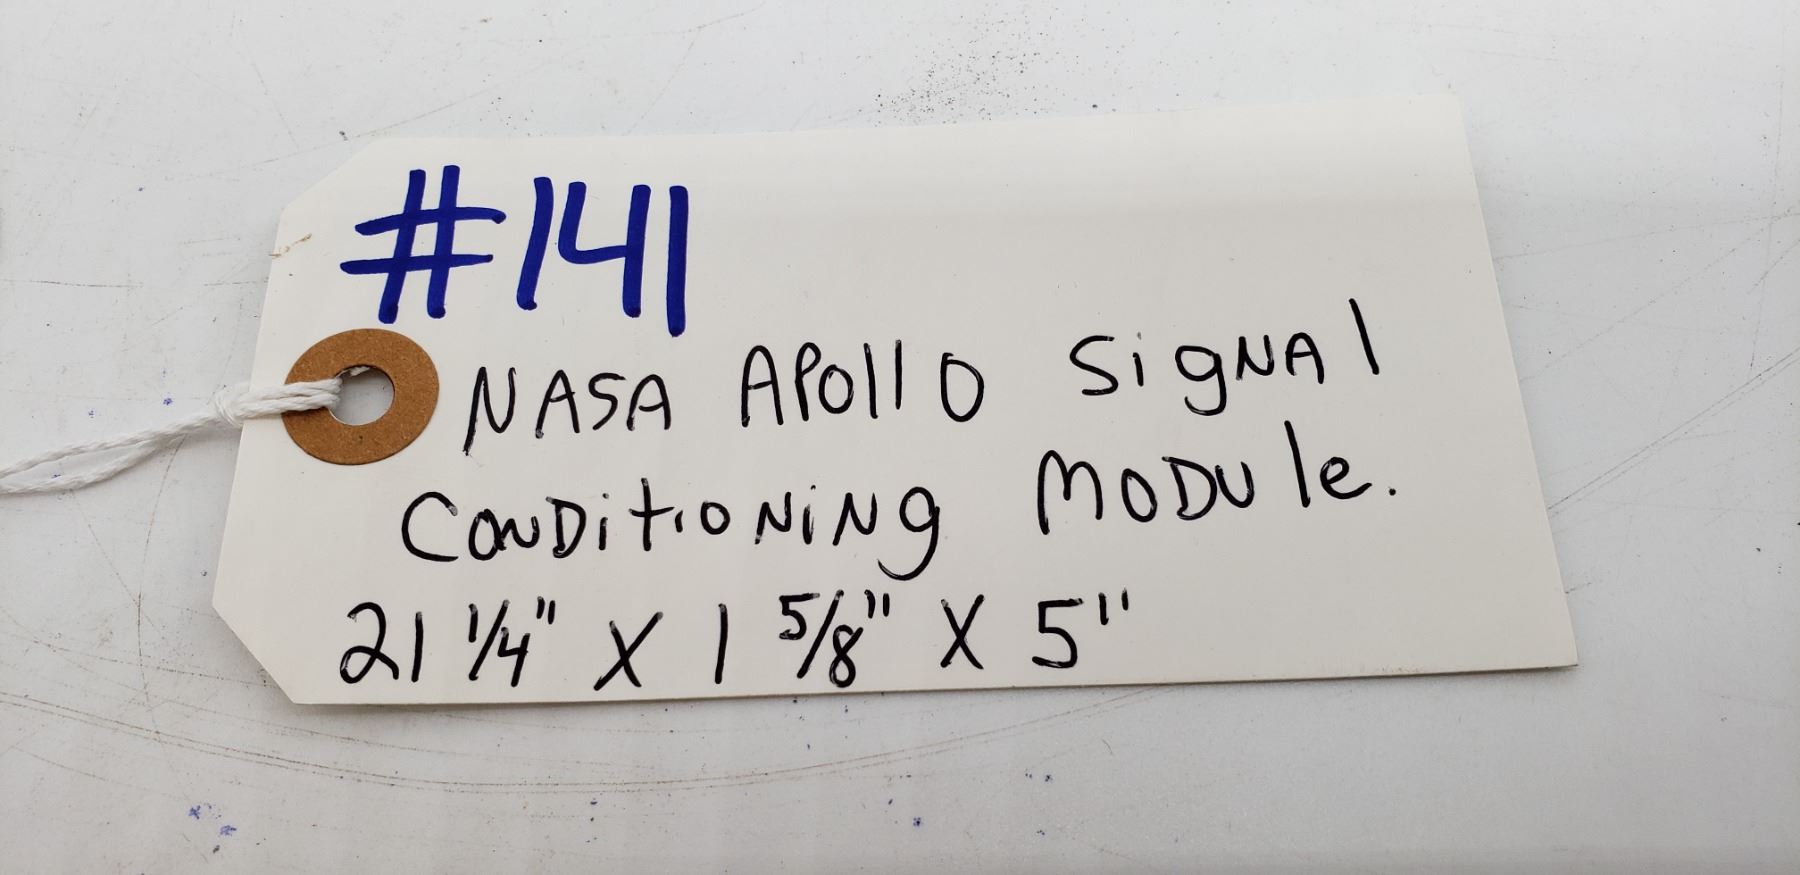 #141
NASA Apollo Signal
Conditioning Module.
21 1/4" X 1 5/8" X 5"